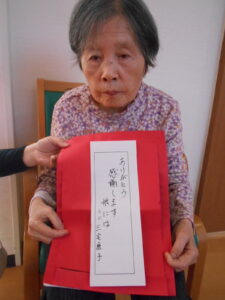 ありがとう
感謝します
娘には
三宅